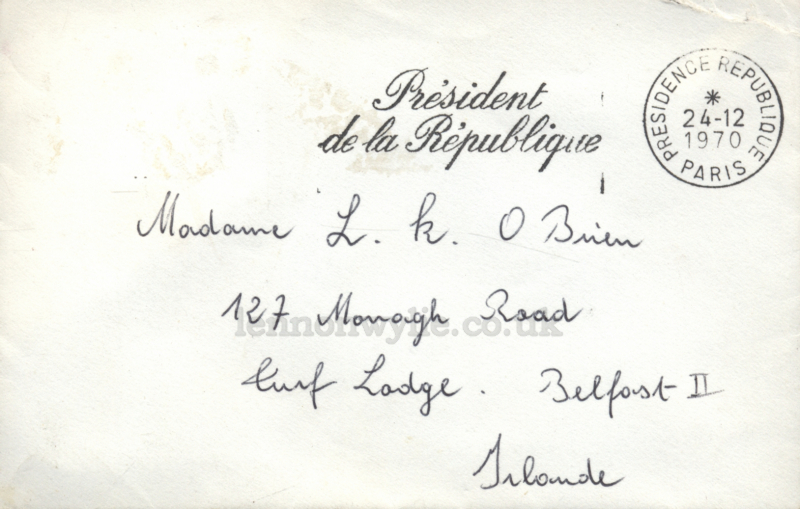 Président
de la République
PRESIDENCE REPUBLIQUE
*
24-12
1970
PARIS
Madame L. K. O Brien
127 Monagh Road
lennonwylie.co.uk
Turf Lodge. Belfast II
Irlande